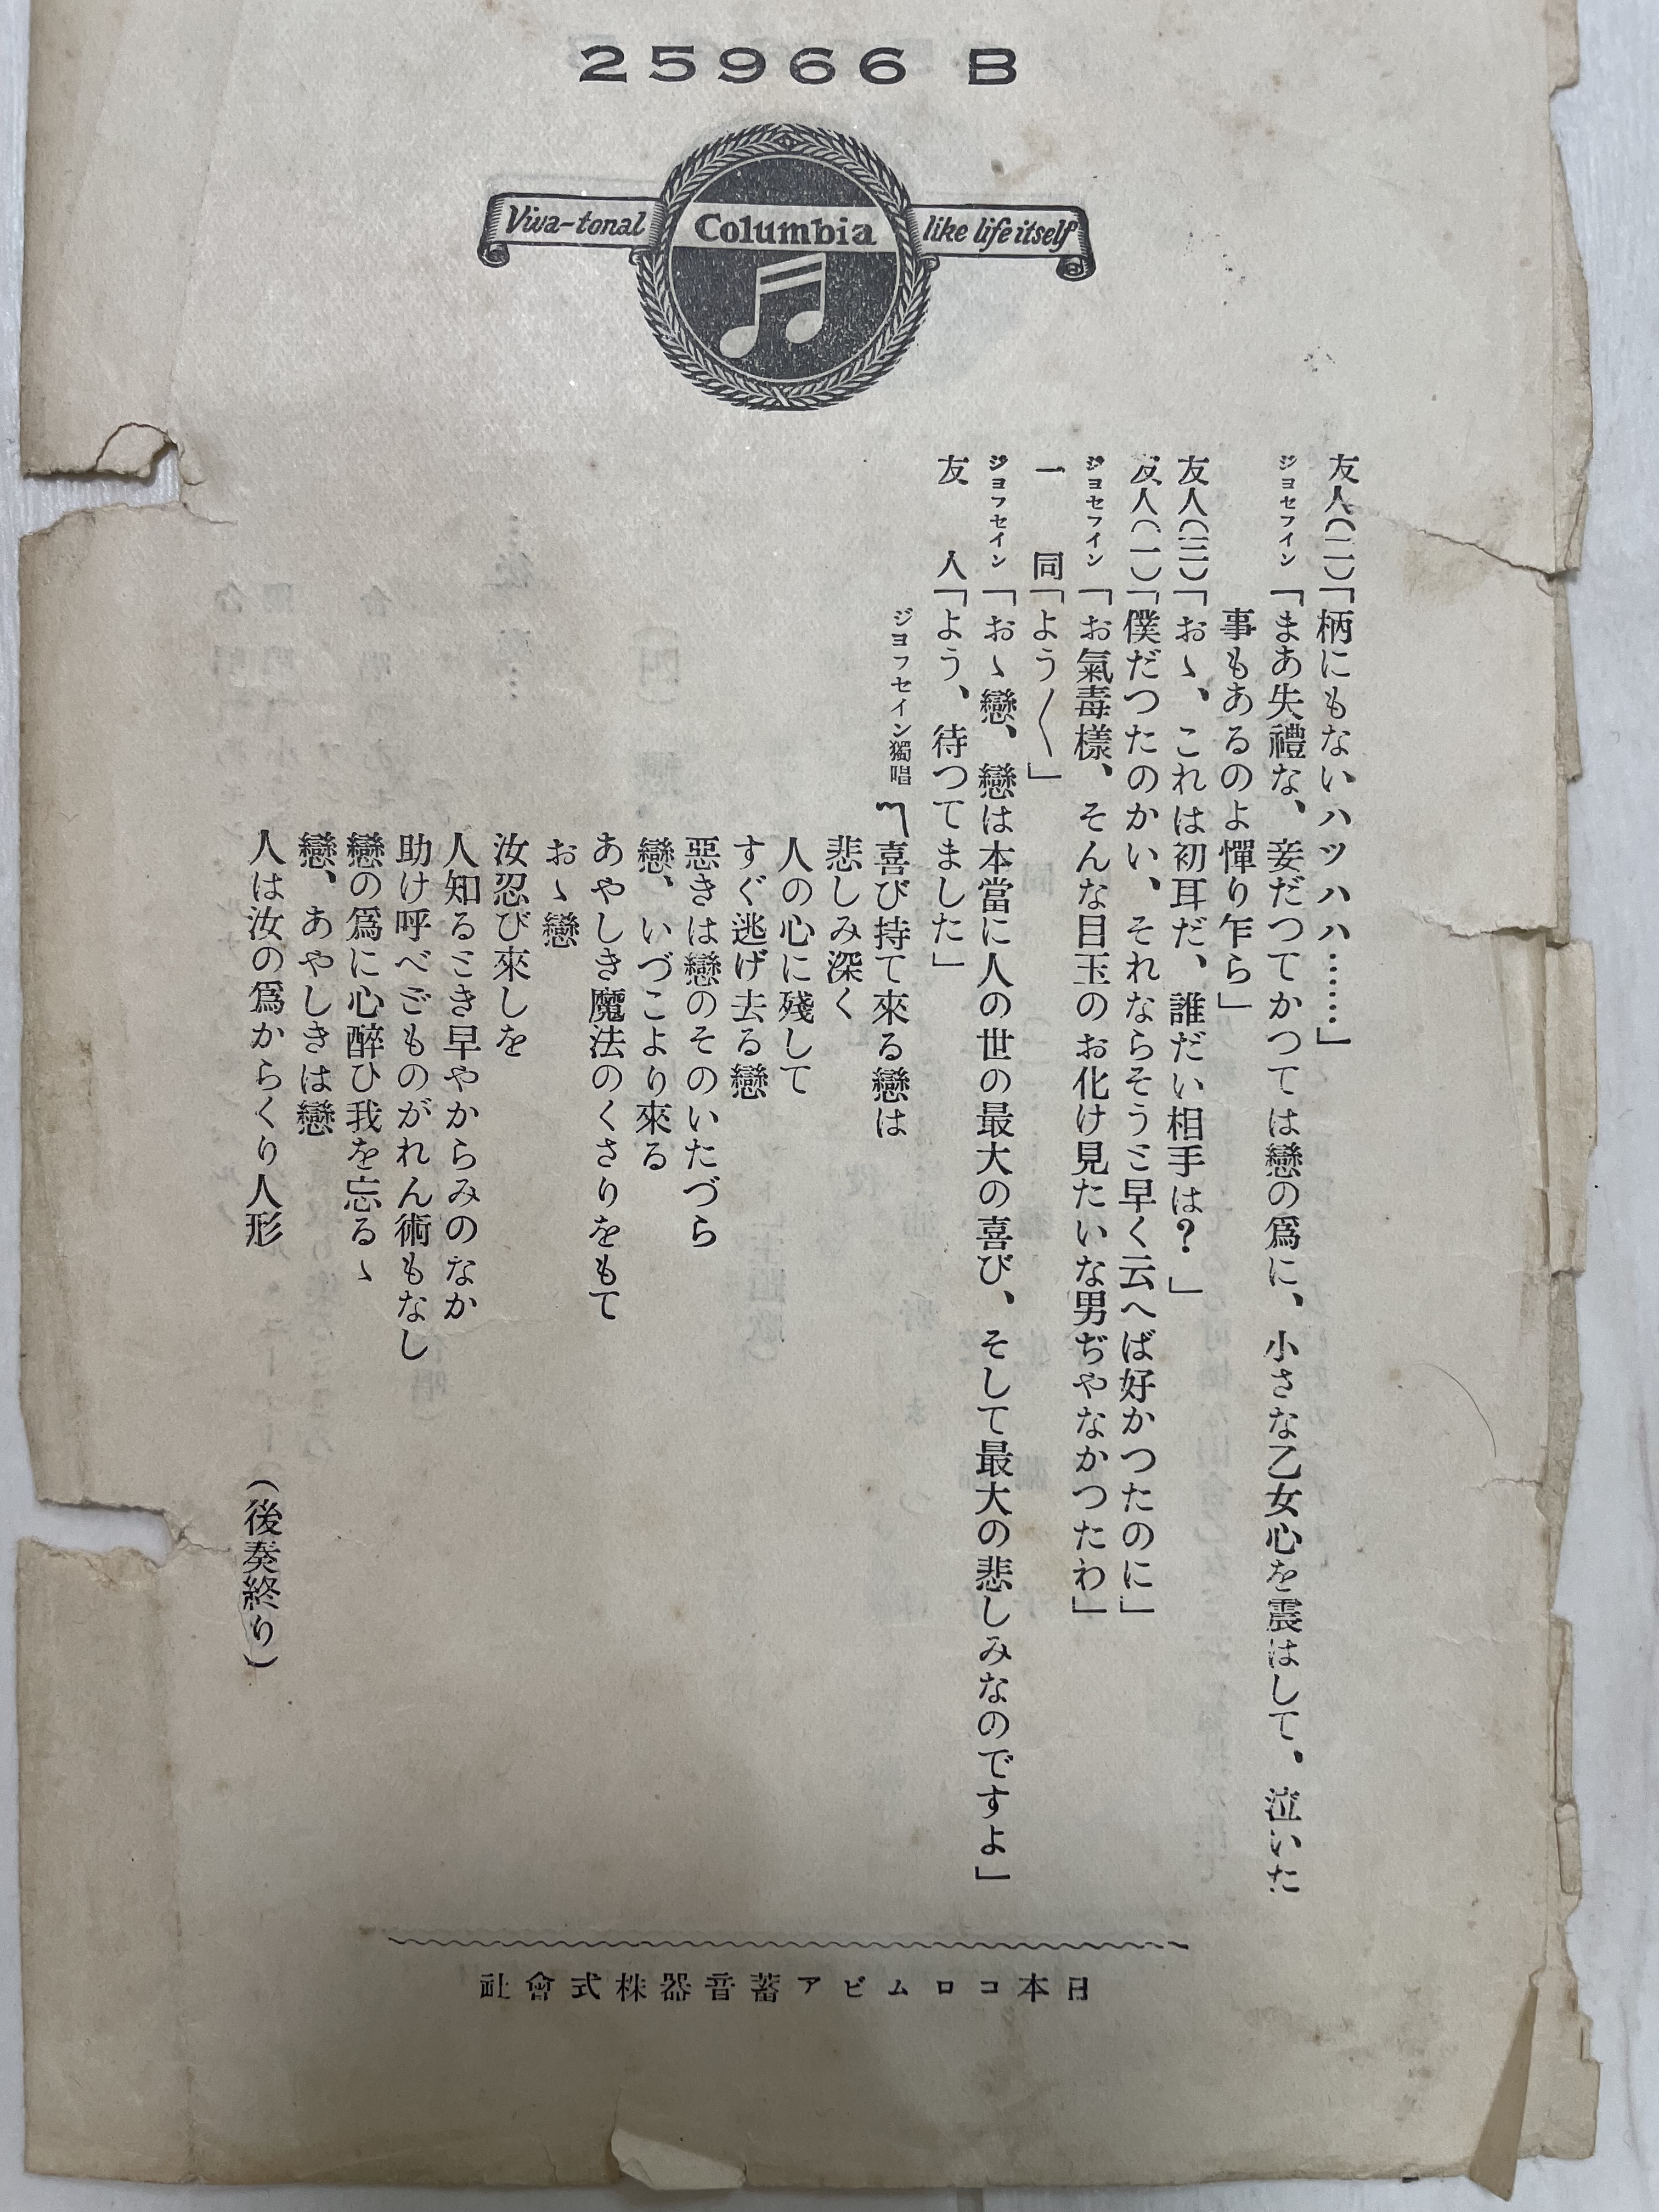 25966 B
Viva-tonal Columbia like life itself
友人(二)「柄にもないハツハハ……」
ジヨセフイン「まあ失禮な、妾だつてかつては戀の爲に、小さな乙女心を震はして。泣いた
事もあるのよ憚り乍ら」
友人(三)「おゝ、これは初耳だ、誰だい相手は?」
友人(一)「僕だつたのかい、それならそうと早く云へば好かつたのに」
ジヨセフイン「お氣毒樣、そんな目玉のお化け見たいな男ぢやなかつたわ」
一同「よう〳〵」
ジヨフセイン「おゝ戀、戀は本當に人の世の最大の喜び、そして最大の悲しみなのですよ」
友人「よう、待つてました」
ジヨフセイン獨唱〽喜び持て來る戀は
悲しみ深く
人の心に殘して
すぐ逃げ去る戀
惡きは戀のそのいたづら
戀、いづこより來る
あやしき魔法のくさりをもて
おゝ戀
汝忍び來しを
人知るとき早やからみのなか
助け呼べどものがれん術もなし
戀の爲に心醉ひ我を忘るゝ
戀、あやしきは戀
人は汝の爲からくり人形
(後奏終り)
社會式株器音蓄アビムロコ本日